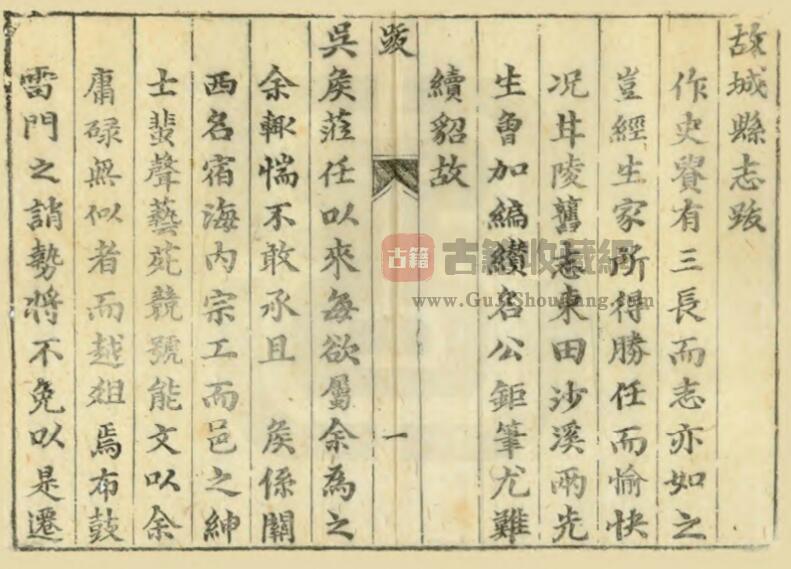 故城縣志跋
作史貴有三長而志亦如之
豈經生家所得勝任而愉快
况甘陵舊志東田沙溪兩先
生曾加編纘名公鉅筆尤難
續貂故
跋
一
吳矦蒞任以來每欲屬余為之
余輙惴不敢承且 矦係關
西名宿海內宗工而邑之紳
士蜚聲藝苑競號能文以余
庸碌無似者而越俎焉布鼓
雷門之誚勢將不免以是遷
古籍
古籍收藏網